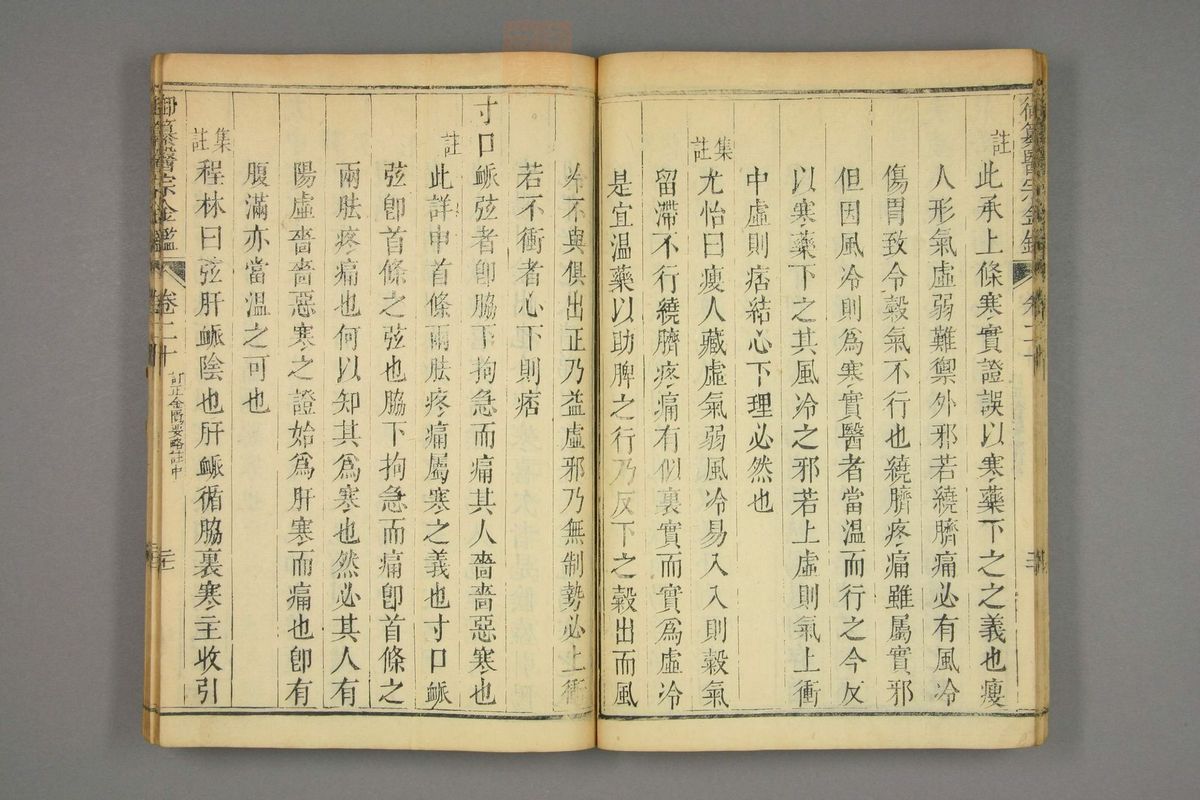 註
此承上條寒實證誤以寒藥下之之義也瘦
人形氣虛弱難禦外邪若繞臍痛必有風冷
傷胃致令穀氣不行也繞臍疼痛雖屬實邪
但因風冷則爲寒實醫者當溫而行之今反
以寒藥下之其風冷之邪若上虛則氣上衝
中虛則痞結心下理必然也
集註
尤怡曰瘦人藏虛氣弱風冷易入入則穀氣
留滯不行繞臍疼痛有似裏實而實爲虛冷
是宜温藥以助脾之行乃反下之穀出而風
冷不與俱出正乃益虛邪乃無制勢必上衝
若不衝者心下則痞
寸口脈弦者卽脇下拘急而痛其人嗇嗇惡寒也
註
此詳申首條兩胠疼痛屬寒之義也寸口脈
弦卽首條之弦也脇下拘急而痛卽首條之
兩胠疼痛也何以知其爲寒也然必其人有
陽虛嗇嗇惡寒之證始爲肝寒而痛也卽有
腹滿亦當溫之可也
集註
程林曰弦肝脈陰也肝脈循脇裏寒主收引
御纂醫宗金鑑
卷二十
訂正金匱要略註中